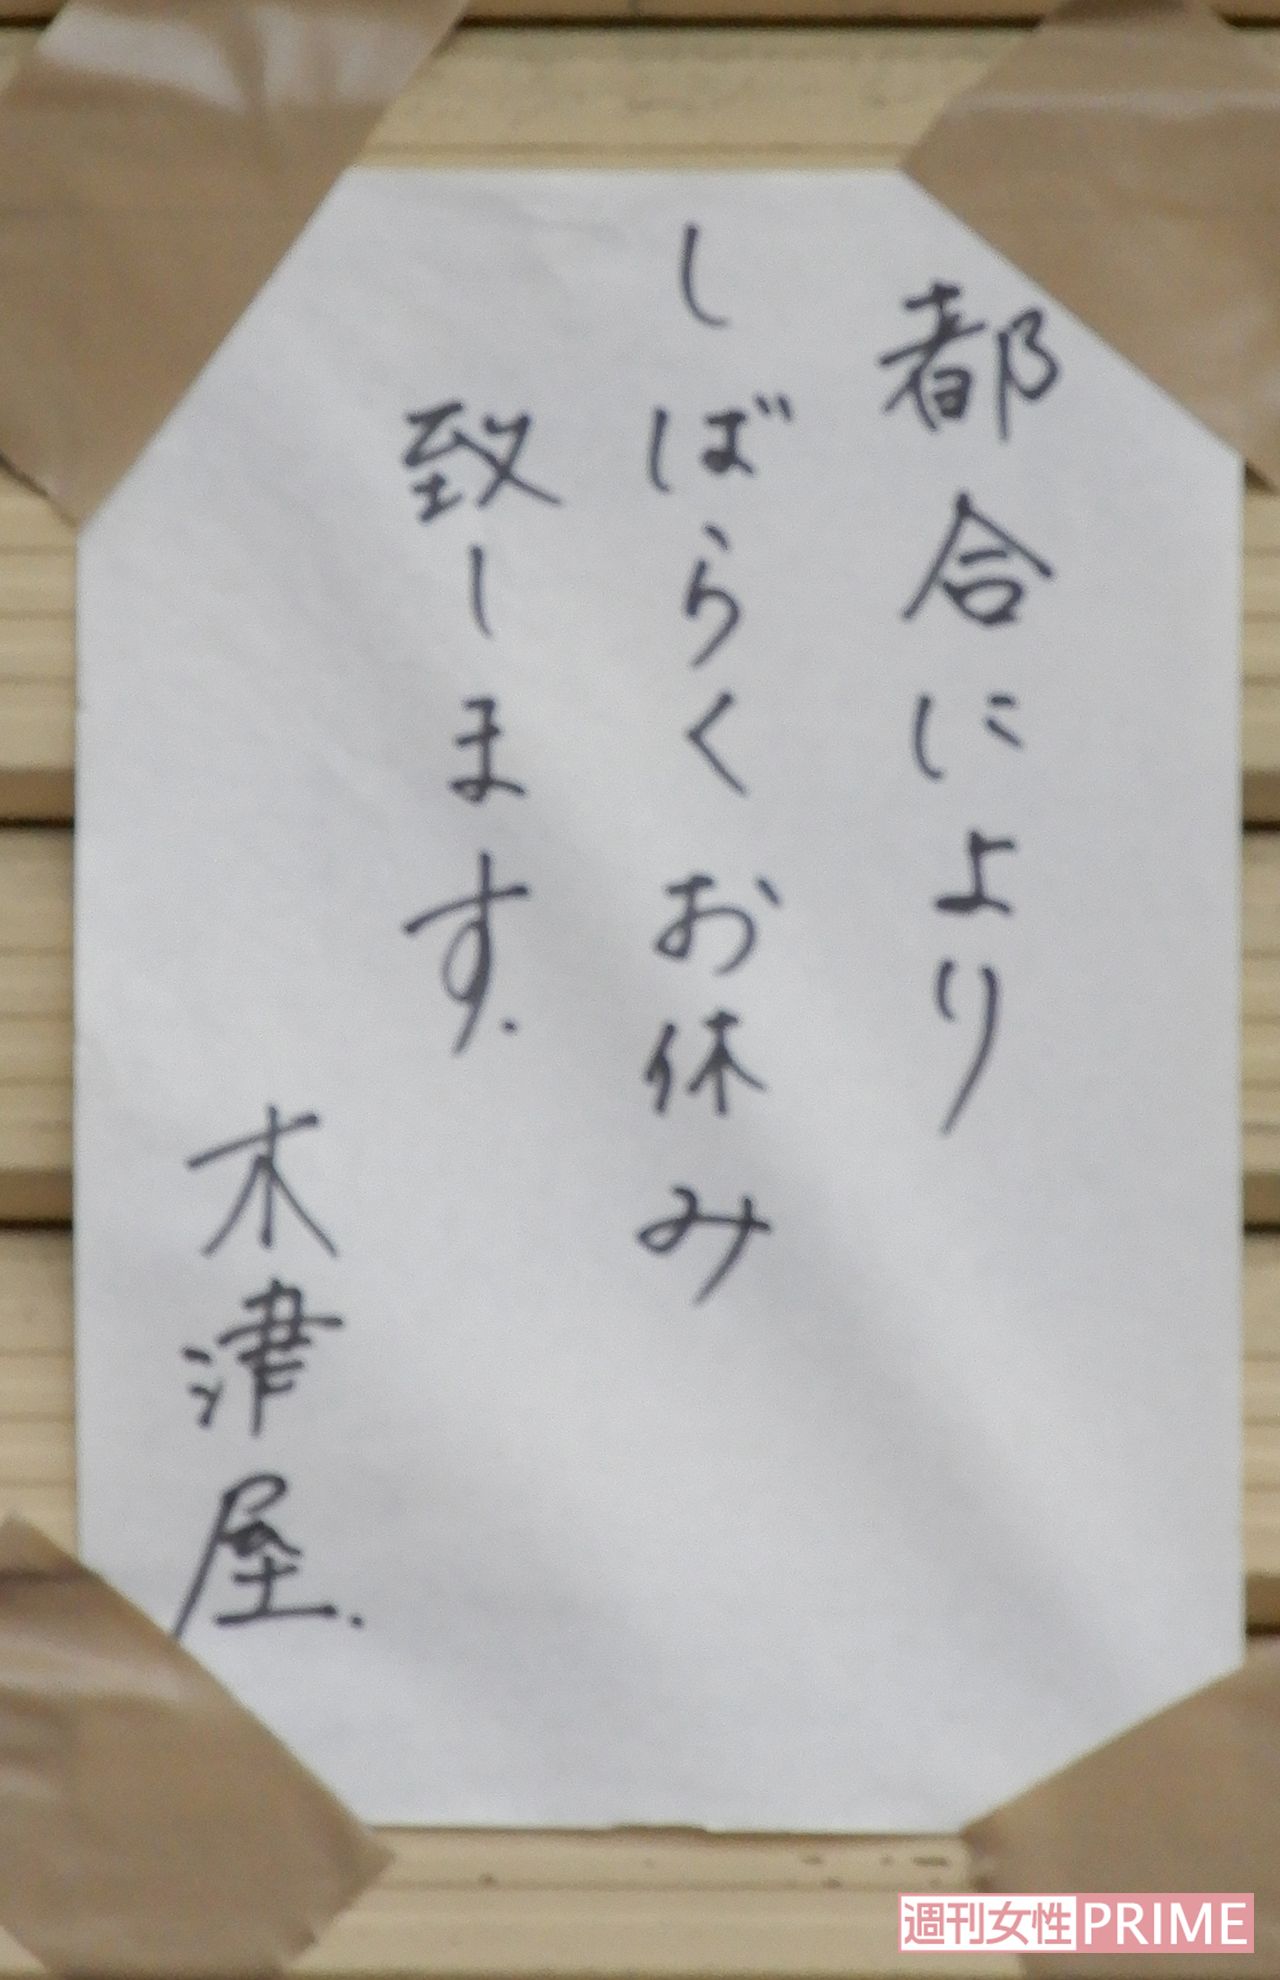 都合により
しばらくお休み
致します.
木津屋.
週刊女性PRIME